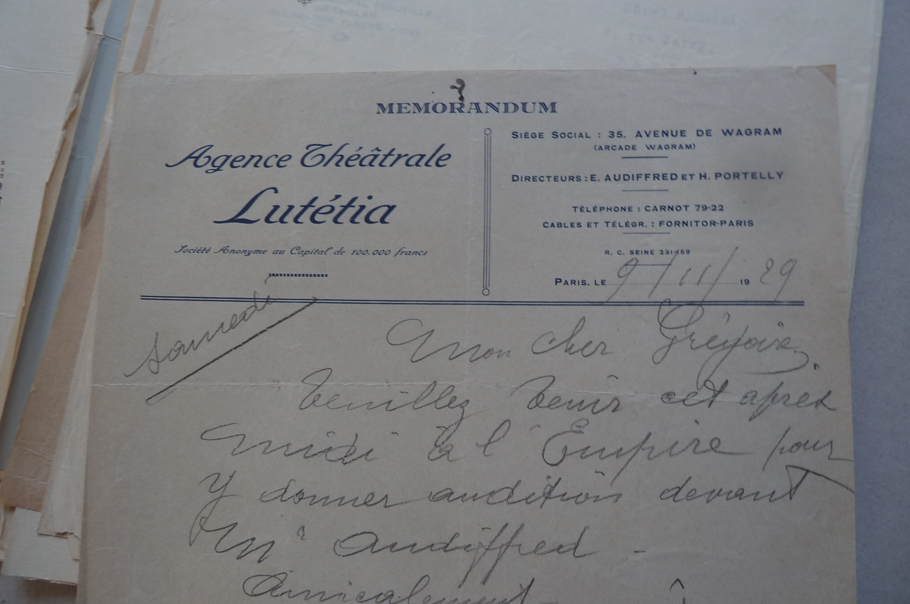 MEMORANDUM
Agence Théâtrale
Lutétia
Société Anonyme au Capital de 100.000 francs
SIÈGE SOCIAL : 35, AVENUE DE WAGRAM
(ARCADE WAGRAM)
DIRECTEURS : E. AUDIFFRED ET H. PORTELLY
TÉLÉPHONE : CARNOT 79-22
CABLES ET TÉLÉGR. : FORNITOR-PARIS
R. C. SEINE 331469
PARIS, LE 9/11/ 1929
Samedi
Mon cher Grégoire,
Veuillez venir cet après
midi à l'Empire pour
y donner audition devant
Mr Audiffred -
Amicalement